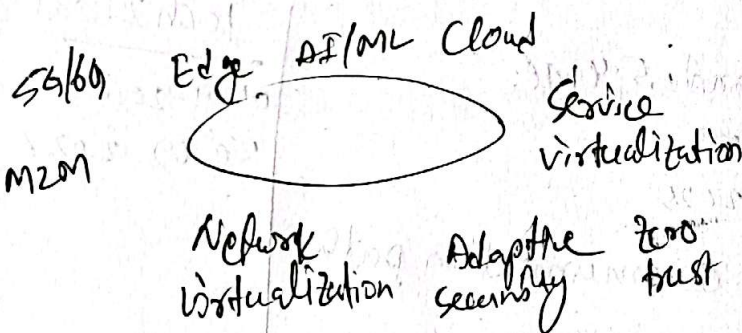 5G/6G Edge AI/ML Cloud
M2M
Service
virtualization
Network
virtualization
Adaptive
security
zero
trust